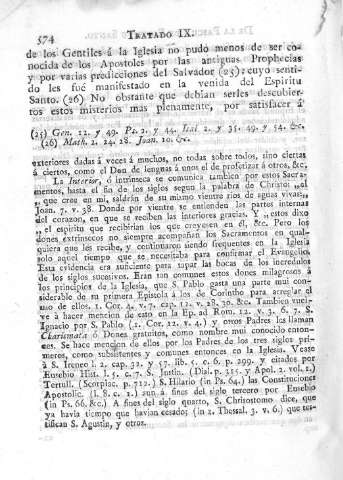 574 TRATADO IX.
de los Gentiles á la Iglesia no pudo menos de ser co-
nocida de los Apostoles por las antiguas Prophecias
y por varias predicciones del Salvador (25): cuyo senti-
do les fué manifestado en la venida del Espiritu
Santo. (26) No obstante que debian serles descubier-
tos estos misterios mas plenamente, por satisfacer á
(25) Gen. 12. y 49. Ps. 2. y 44. Isai. 2. y 35. 49. y 54. &c.
(26) Math. 2. 24. 28. Joan. 10. &c.
exteriores dadas á veces á muchos, no todas sobre todos, sino ciertas
á ciertos, como el Don de lenguas á unos el de profetizar á otros, &c.
La Interior, ó intrinseca se comunica tambien por estos Sacra-
mentos, hasta el fin de los siglos segun la palabra de Christo: „el
„ que cree en mi, saldrán de su mismo vientre rios de aguas vivas„
Joan. 7. v. 38. Donde por vientre se entienden las partes internas
del corazon, en que se reciben las interiores gracias. Y „ estos dixo
„ el espiritu que recibirian los que creyesen en él, &c. Pero los
dones extrinsecos no siempre acompañan los Sacramentos en qual-
quiera que les recibe, y continuaron siendo frequentes en la Iglesia
solo aquel tiempo que se necesitaba para confirmar el Evangelio.
Esta evidencia era suficiente para tapar las bocas de los incredulos
de los siglos sucesivos. Eran tan comunes estos dones milagrosos á
los principios de la Iglesia, que S. Pablo gasta una parte muy con-
siderable de su primera Epistola á los de Corintho para arreglar el
uso de ellos. 1. Cor. 4. v. 7. cap. 12. v. 28. 30. &c. Tambien vuel-
ve á hacer mencion de esto en la Ep. ad Rom. 12. v. 3. 6. 7. S.
Ignacio por S. Pablo (1. Cor. 22. v. 4.) y otros Padres los llaman
Charismata ó Dones gratuitos, como nombre mui conocido enton-
ces. Se hace mencion de ellos por los Padres de los tres siglos pri-
meros, como subsistentes y comunes entonces en la Iglesia. Vease
á S. Ireneo l. 2. cap. 32. y 57. lib. 5. c. 6. p. 299. y citados por
Eusebio Hist. l. 5. c. 7. S. Justin. (Dial. p. 315. y Apol. 2. vol. 1.)
Tertull. (Scorpiac. p. 712.) S. Hilario (in Ps. 64.) las Constituciones
Apostolic. (l. 8. c. 2.) aun á fines del siglo tercero por Eusebio
(in Ps. 66. &c.) A fines del siglo quarto, S. Chrisostomo dice, que
ya havia tiempo que havian cesado; (in 2. Thessal. 3. v. 6.) que tes-
tifican S. Agustin, y otros.